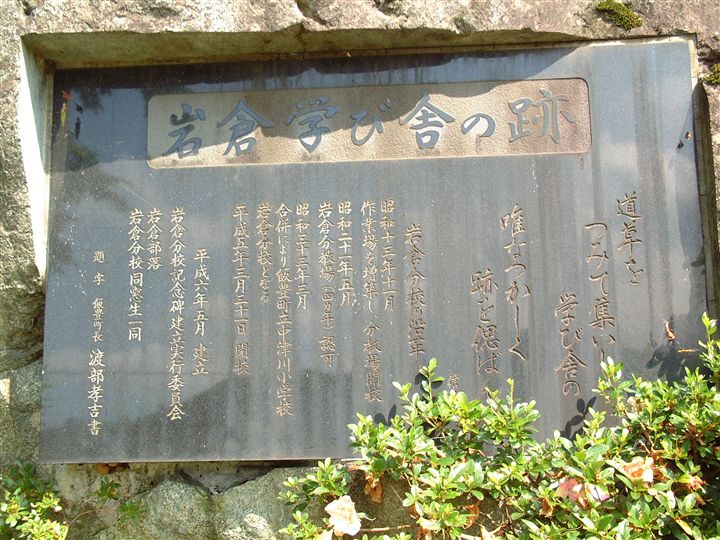 岩倉学び舎の跡
道草を
つみて集いし
学び舎の
唯なつかしく
跡を偲ばん
岩倉分校の沿革
昭和十三年十一月
作業場を増築し、分教場開校
昭和二十一年五月
岩倉分教場(四カ年)認可
昭和三十三年三月
合併により飯豊町立中津川小学校
岩倉分校となる
平成五年三月三十一日 閉校
平成六年五月 建立
岩倉分校記念碑建立実行委員会
岩倉部落
岩倉分校同窓生一同
題字 飯豊町長 渡部孝吉書